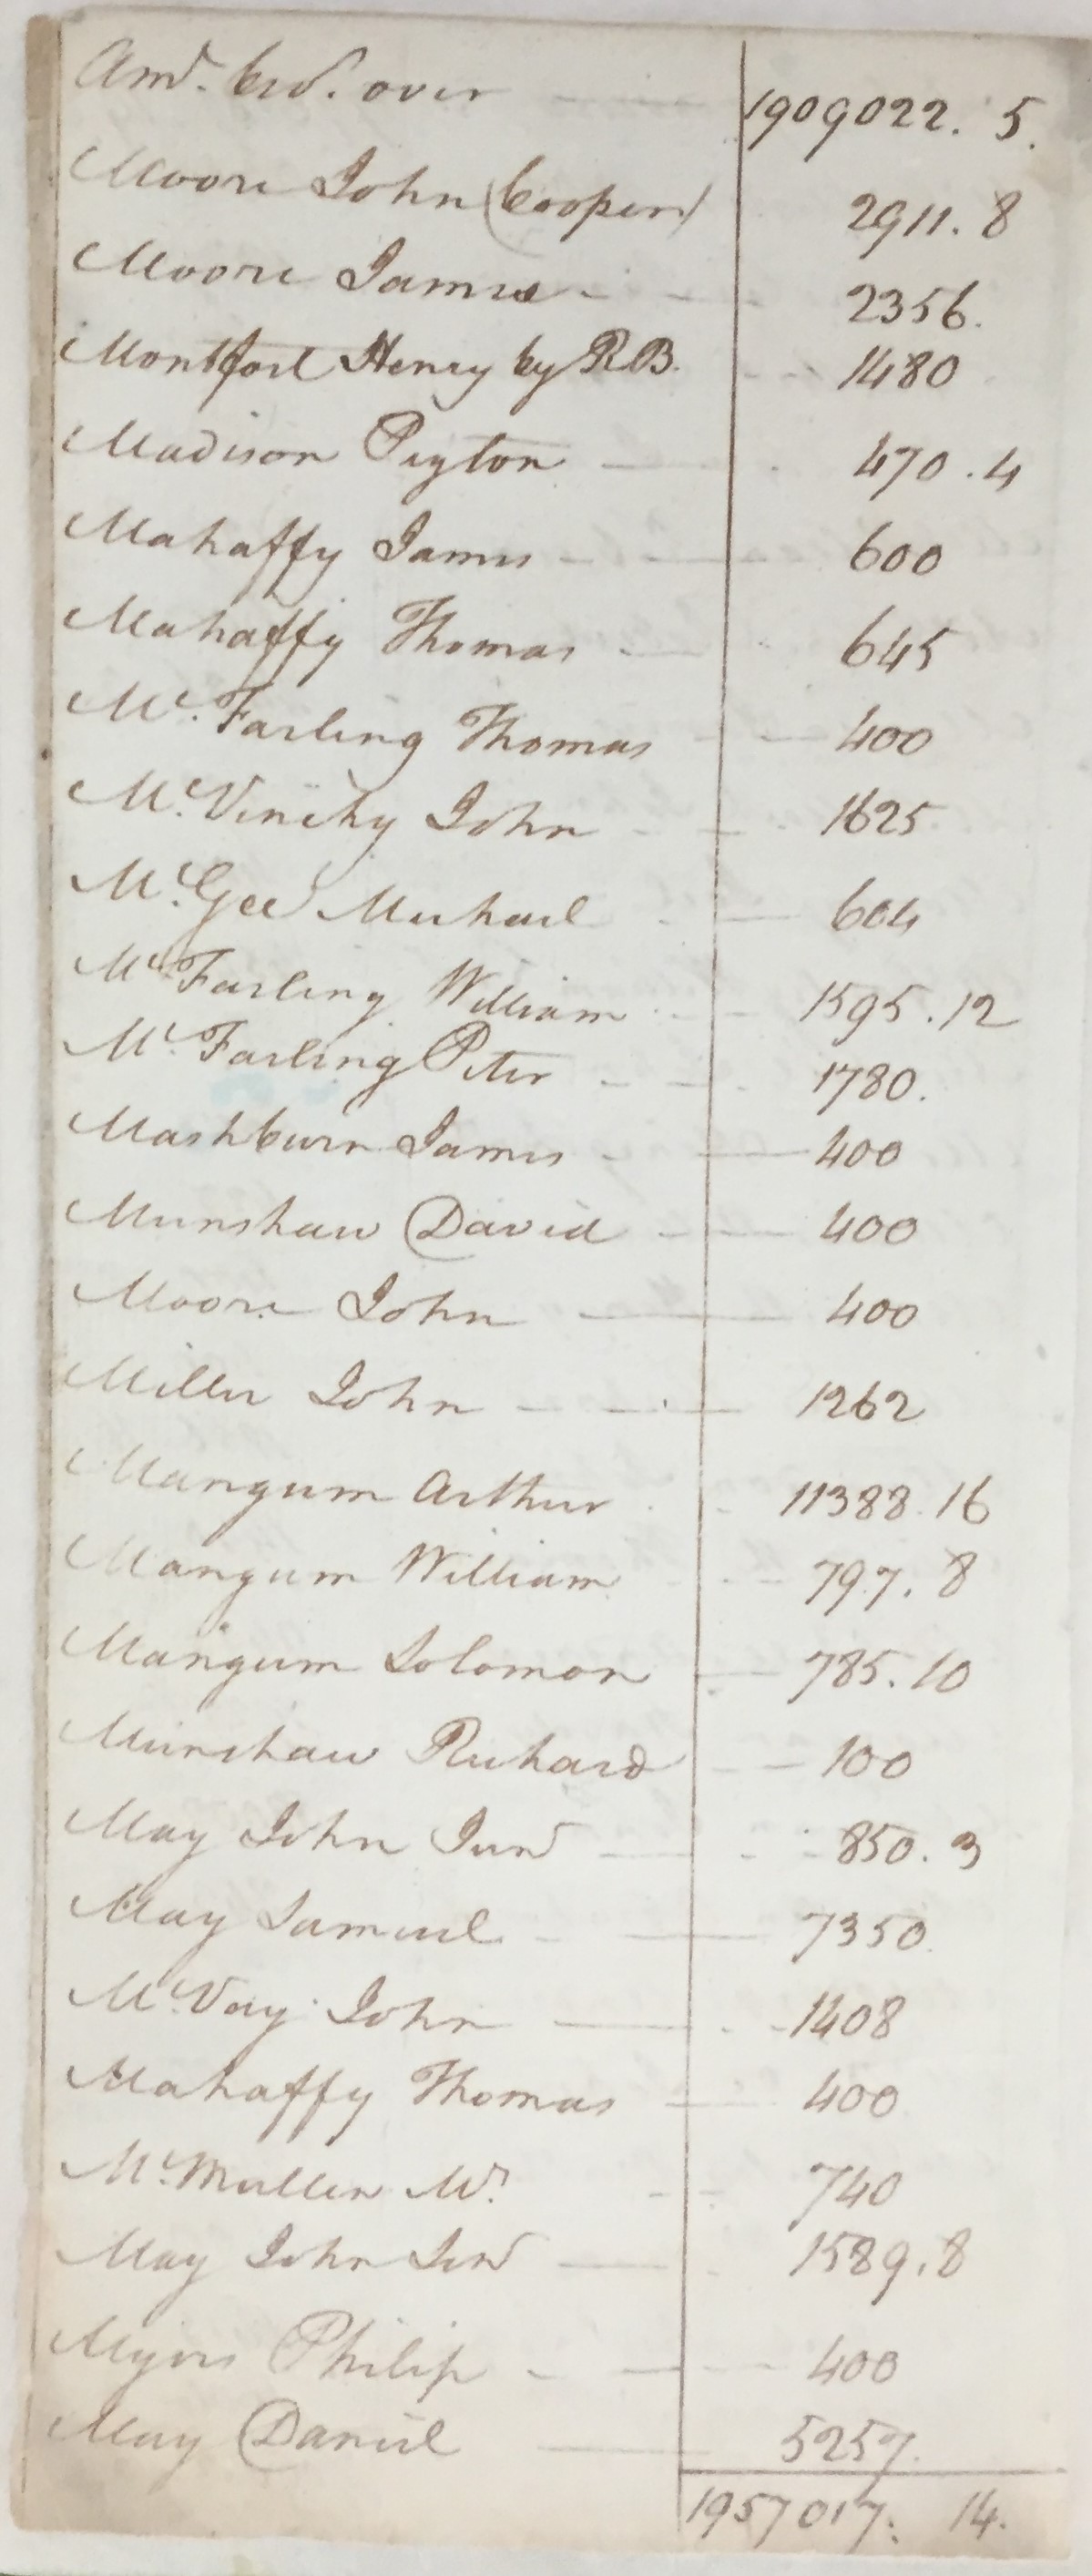 Amt. brt. over 1909022. 5.
Moore John (Cooper) 2911. 8
Moore James 2356.
Montfort Henry by R B. 1480
Madison Peyton 470. 4
Mahaffy James 600
Mahaffy Thomas 645
Mc. Farling Thomas 400
Mc. Vinchy John 1625
Mc. Gee Michael 604
Mc Farling William 1595. 12
Mc. Farling Peter 1780.
Mashburn James 400
Munshaw David 400
Moore John 400
Miller John 1262
Mangum Arthur 11388. 16
Mangum William 797. 8
Mangum Solomon 785. 10
Munshaw Richard 100
May John Junr 850. 3
May Samuel 7350
Mc. Vay John 1408
Mahaffy Thomas 400
Mc. Mullen Mr. 740
May John Senr 1589. 8
Myers Philip 400
May Daniel 5257.
1957017. 14.